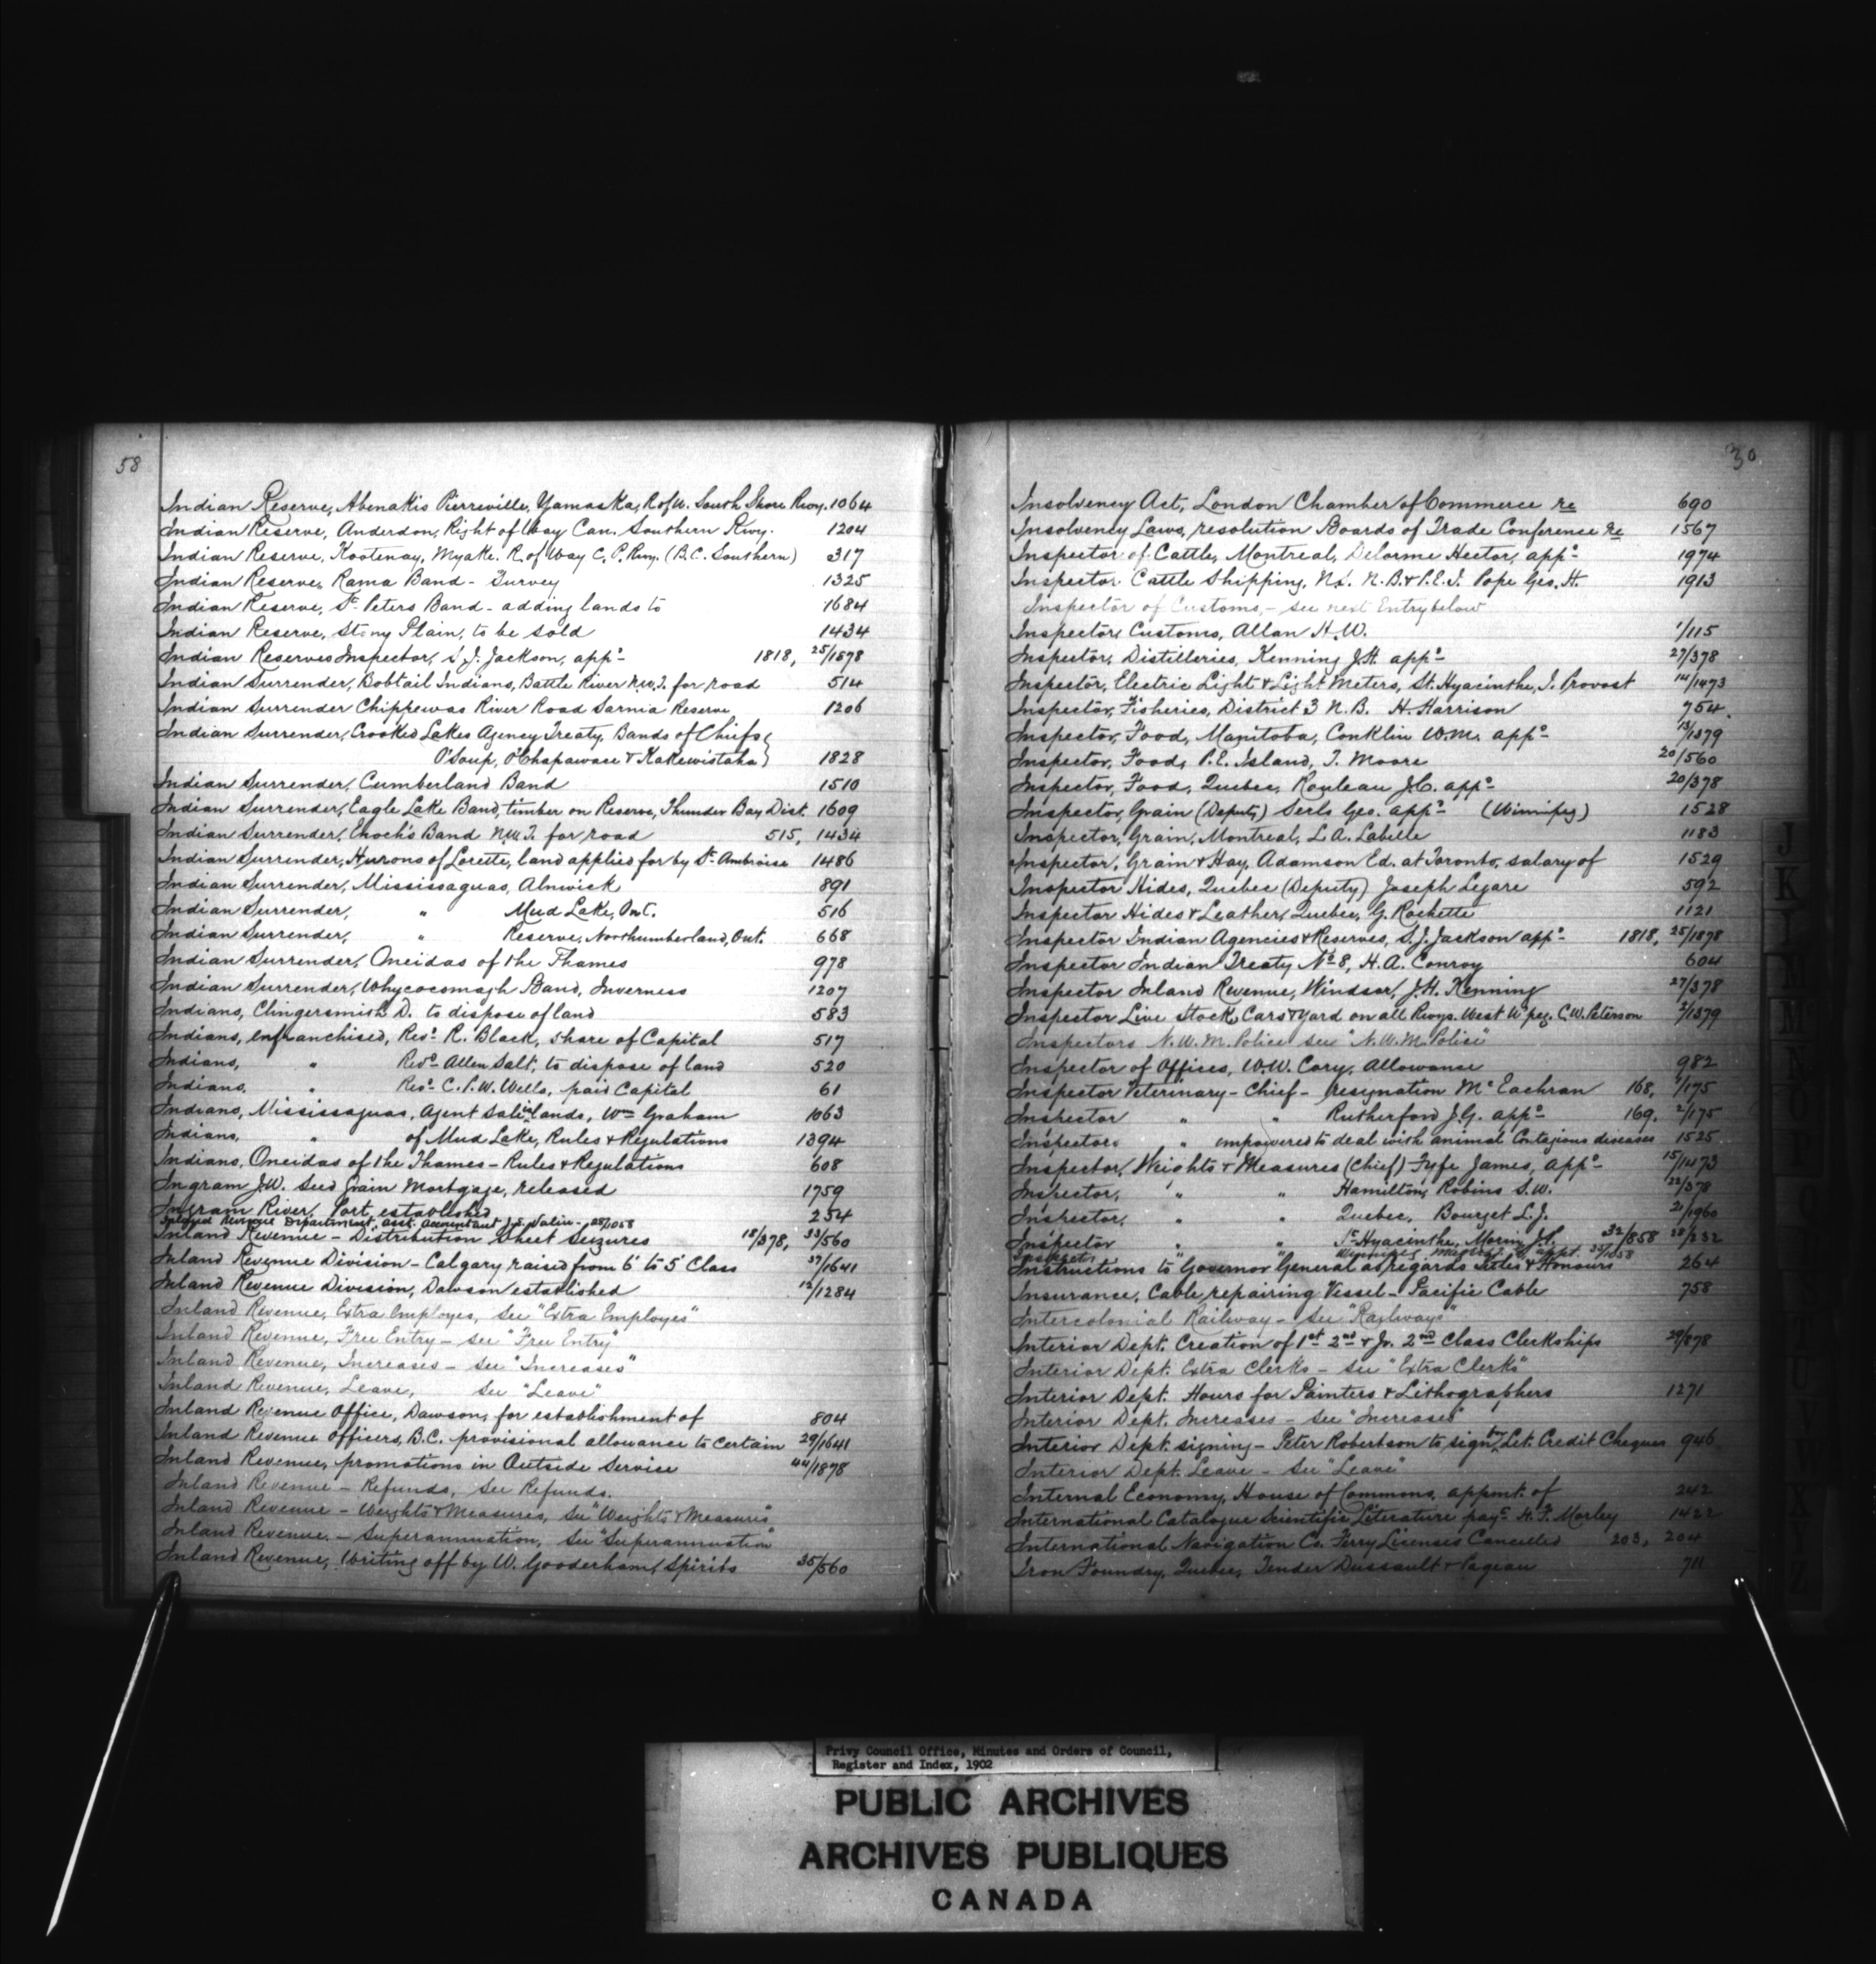 58
Indian Reserve, Abenakis Pierreville, Yamaska, R of W. South Shore Rwy. 1064
Indian Reserve, Anderdon, Right of Way Can. Southern Rwy. 1204
Indian Reserve, Kootenay, Myake. R. of Way C. P. Rwy. (B.C. Southern) 317
Indian Reserve, Rama Band - Survey 1325
Indian Reserve, St. Peters Band - adding lands to 1684
Indian Reserve, Stony Plain, to be sold 1434
Indian Reserves Inspector, S. J. Jackson, appt. 1818, 25/1878
Indian Surrender, Bobtail Indians, Battle River N.W.T. for road 514
Indian Surrender Chippewas River Road Sarnia Reserve 1206
Indian Surrender, Crooked Lakes Agency Treaty, Bands of Chiefs
O'Soup, O'Chapawace & Kakewistaha 1828
Indian Surrender, Cumberland Band 1510
Indian Surrender, Eagle Lake Band, timber on Reserve, Thunder Bay Dist. 1609
Indian Surrender, Enoch's Band N.W.T. for road 515, 1434
Indian Surrender, Hurons of Lorette, land applied for by St. Ambroise 1486
Indian Surrender, Mississaguas, Alnwick 891
Indian Surrender, " Mud Lake, Ont. 516
Indian Surrender, " Reserve, Northumberland, Ont. 668
Indian Surrender, Oneidas of the Thames 978
Indian Surrender, Whycocomagh Band, Inverness 1207
Indians, Clingersmith D. to dispose of land 583
Indians, enfranchised, Revd. R. Black, share of Capital 517
Indians, " Revd. Allen Salt, to dispose of land 520
Indians, " Revd. C. P. W. Wells, paid Capital 61
Indians, Mississaguas, Agent Sale lands, Wm Graham 1063
Indians, " of Mud Lake, Rules & Regulations 1394
Indians, Oneidas of the Thames - Rules & Regulations 608
Ingram J.W. Seed Grain Mortgage, released 1759
Ingram River, Port, established 254
Inland Revenue Department, asst. accountant J.S. Valin - 28/1058
Inland Revenue - Distribution Sheet Seizures 18/378, 33/560
Inland Revenue Division - Calgary raised from 6 to 5 Class 37/1641
Inland Revenue Division, Dawson established 12/1284
Inland Revenue, Extra Employes, see "Extra Employes"
Inland Revenue, Free Entry - see "Free Entry"
Inland Revenue, Increases - see "Increases"
Inland Revenue, Leave, see "Leave"
Inland Revenue Office, Dawson, for establishment of 804
Inland Revenue Officers, B.C. provisional allowance to certain 29/1641
Inland Revenue, promotions in Outside Service 44/1878
Inland Revenue - Refunds, see Refunds.
Inland Revenue - Weights & Measures, see "Weights & Measures"
Inland Revenue - Superannuation, see "Superannuation"
Inland Revenue, Writing off by W. Gooderham, Spirits 35/560
30
Insolvency Act, London Chamber of Commerce re 690
Insolvency Laws, resolution Boards of Trade Conference re 1567
Inspector of Cattle, Montreal, Delorme Hector, appt. 1974
Inspector Cattle Shipping, N.S. N.B. & P.E.I. Pope Geo. H. 1913
Inspector of Customs, - see next Entry below
Inspector, Customs, Allan H.W. 1/115
Inspector, Distilleries, Kenning J.H. appt. 27/378
Inspector, Electric Light & Light Meters, St. Hyacinthe, J. Provost 14/1473
Inspector, Fisheries, District 3 N.B. H. Harrison 754
Inspector, Food, Manitoba, Conklin W.M. appt. 13/1379
Inspector, Food, P.E. Island, T. Moore 20/560
Inspector, Food, Quebec, Rouleau J.C. appt. 20/378
Inspector, Grain (Deputy) Serls Geo. appt. (Winnipeg) 1528
Inspector, Grain, Montreal, L.A. Labelle 1183
Inspector, Grain & Hay, Adamson Ed. at Toronto, salary of 1529
Inspector Hides, Quebec (Deputy) Joseph Legare 592
Inspector Hides & Leather, Quebec, G. Rochette 1121
Inspector Indian Agencies & Reserves, S. J. Jackson appt. 1818, 25/1878
Inspector Indian Treaty No 8, H. A. Conroy 604
Inspector Inland Revenue, Windsor, J.H. Kenning 27/378
Inspector Live Stock, Cars & Yard on all Rwys. West W'peg. C.W. Peterson 2/1379
Inspectors N.W.M. Police see "N.W.M. Police"
Inspector of Offices, W.W. Cory, Allowance 982
Inspector Veterinary - Chief - resignation McEachran 168, 1/175
Inspector " " Rutherford J.G. appt. 169, 2/175
Inspector " empowered to deal with animal Contagious diseases 1525
Inspector, Weights & Measures (Chief) Fyfe James, appt. 15/1473
Inspector, " " Hamilton, Robins S.W. 22/378
Inspector, " " Quebec, Bourget L.J. 21/1960
Inspector " " St Hyacinthe, Morin J.S. 32/858 28/232
Instructions to "Governor General" as regards titles & Honours 264
Insurance, Cable repairing Vessel - Pacific Cable 758
Intercolonial Railway - see "Railways"
Interior Dept. Creation of 1st 2nd & Jr. 2nd Class Clerkships 29/878
Interior Dept. Extra Clerks - see "Extra Clerks"
Interior Dept. Hours for Painters & Lithographers 1271
Interior Dept. Increases - see "Increases"
Interior Dept. signing - Peter Robertson to sign Let. Credit Cheques 946
Interior Dept. Leave - see "Leave"
Internal Economy, House of Commons, appmt. of 242
International Catalogue Scientific Literature payt. H. F. Morley 1422
International Navigation Co. Ferry Licenses Cancelled 203, 204
Iron Foundry, Quebec, Tender Dussault & Pageau 711
J
K
Privy Council Office, Minutes and Orders of Council,
Register and Index, 1902
PUBLIC ARCHIVES
ARCHIVES PUBLIQUES
CANADA